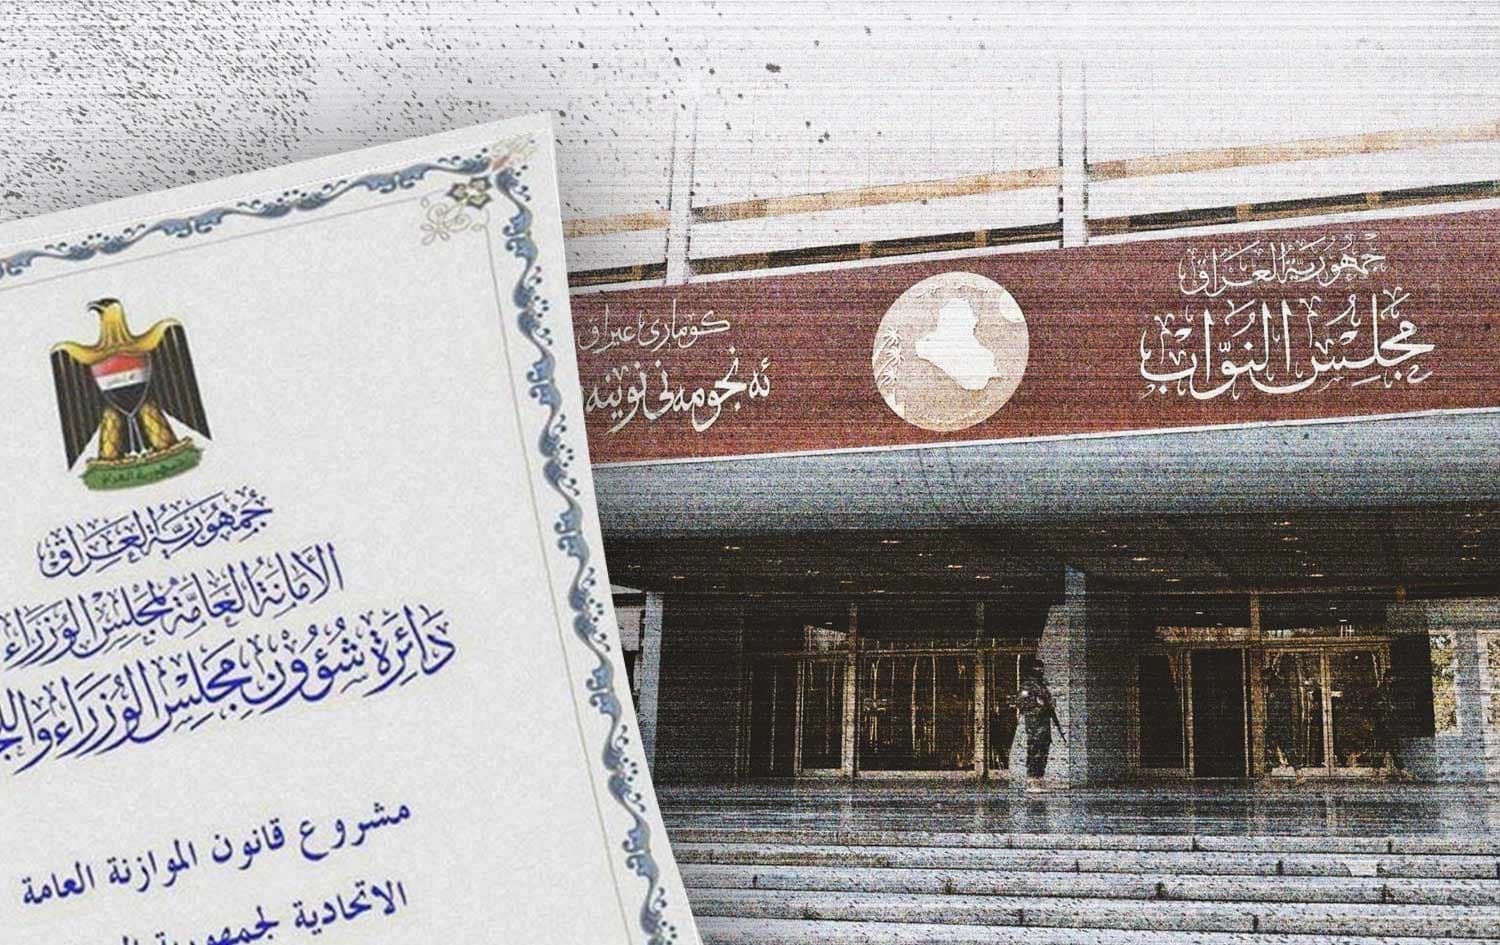 جمهورية العراق
مجلس النواب
كۆماری عیراق
ئه نجومه نی نوینه
جمهورية العراق
جمهورية العراق
الأمانة العامة لمجلس الوزراء
دائرة شؤون مجلس الوزراء
مشروع قانون الموازنة العامة
الاتحادية لجمهورية